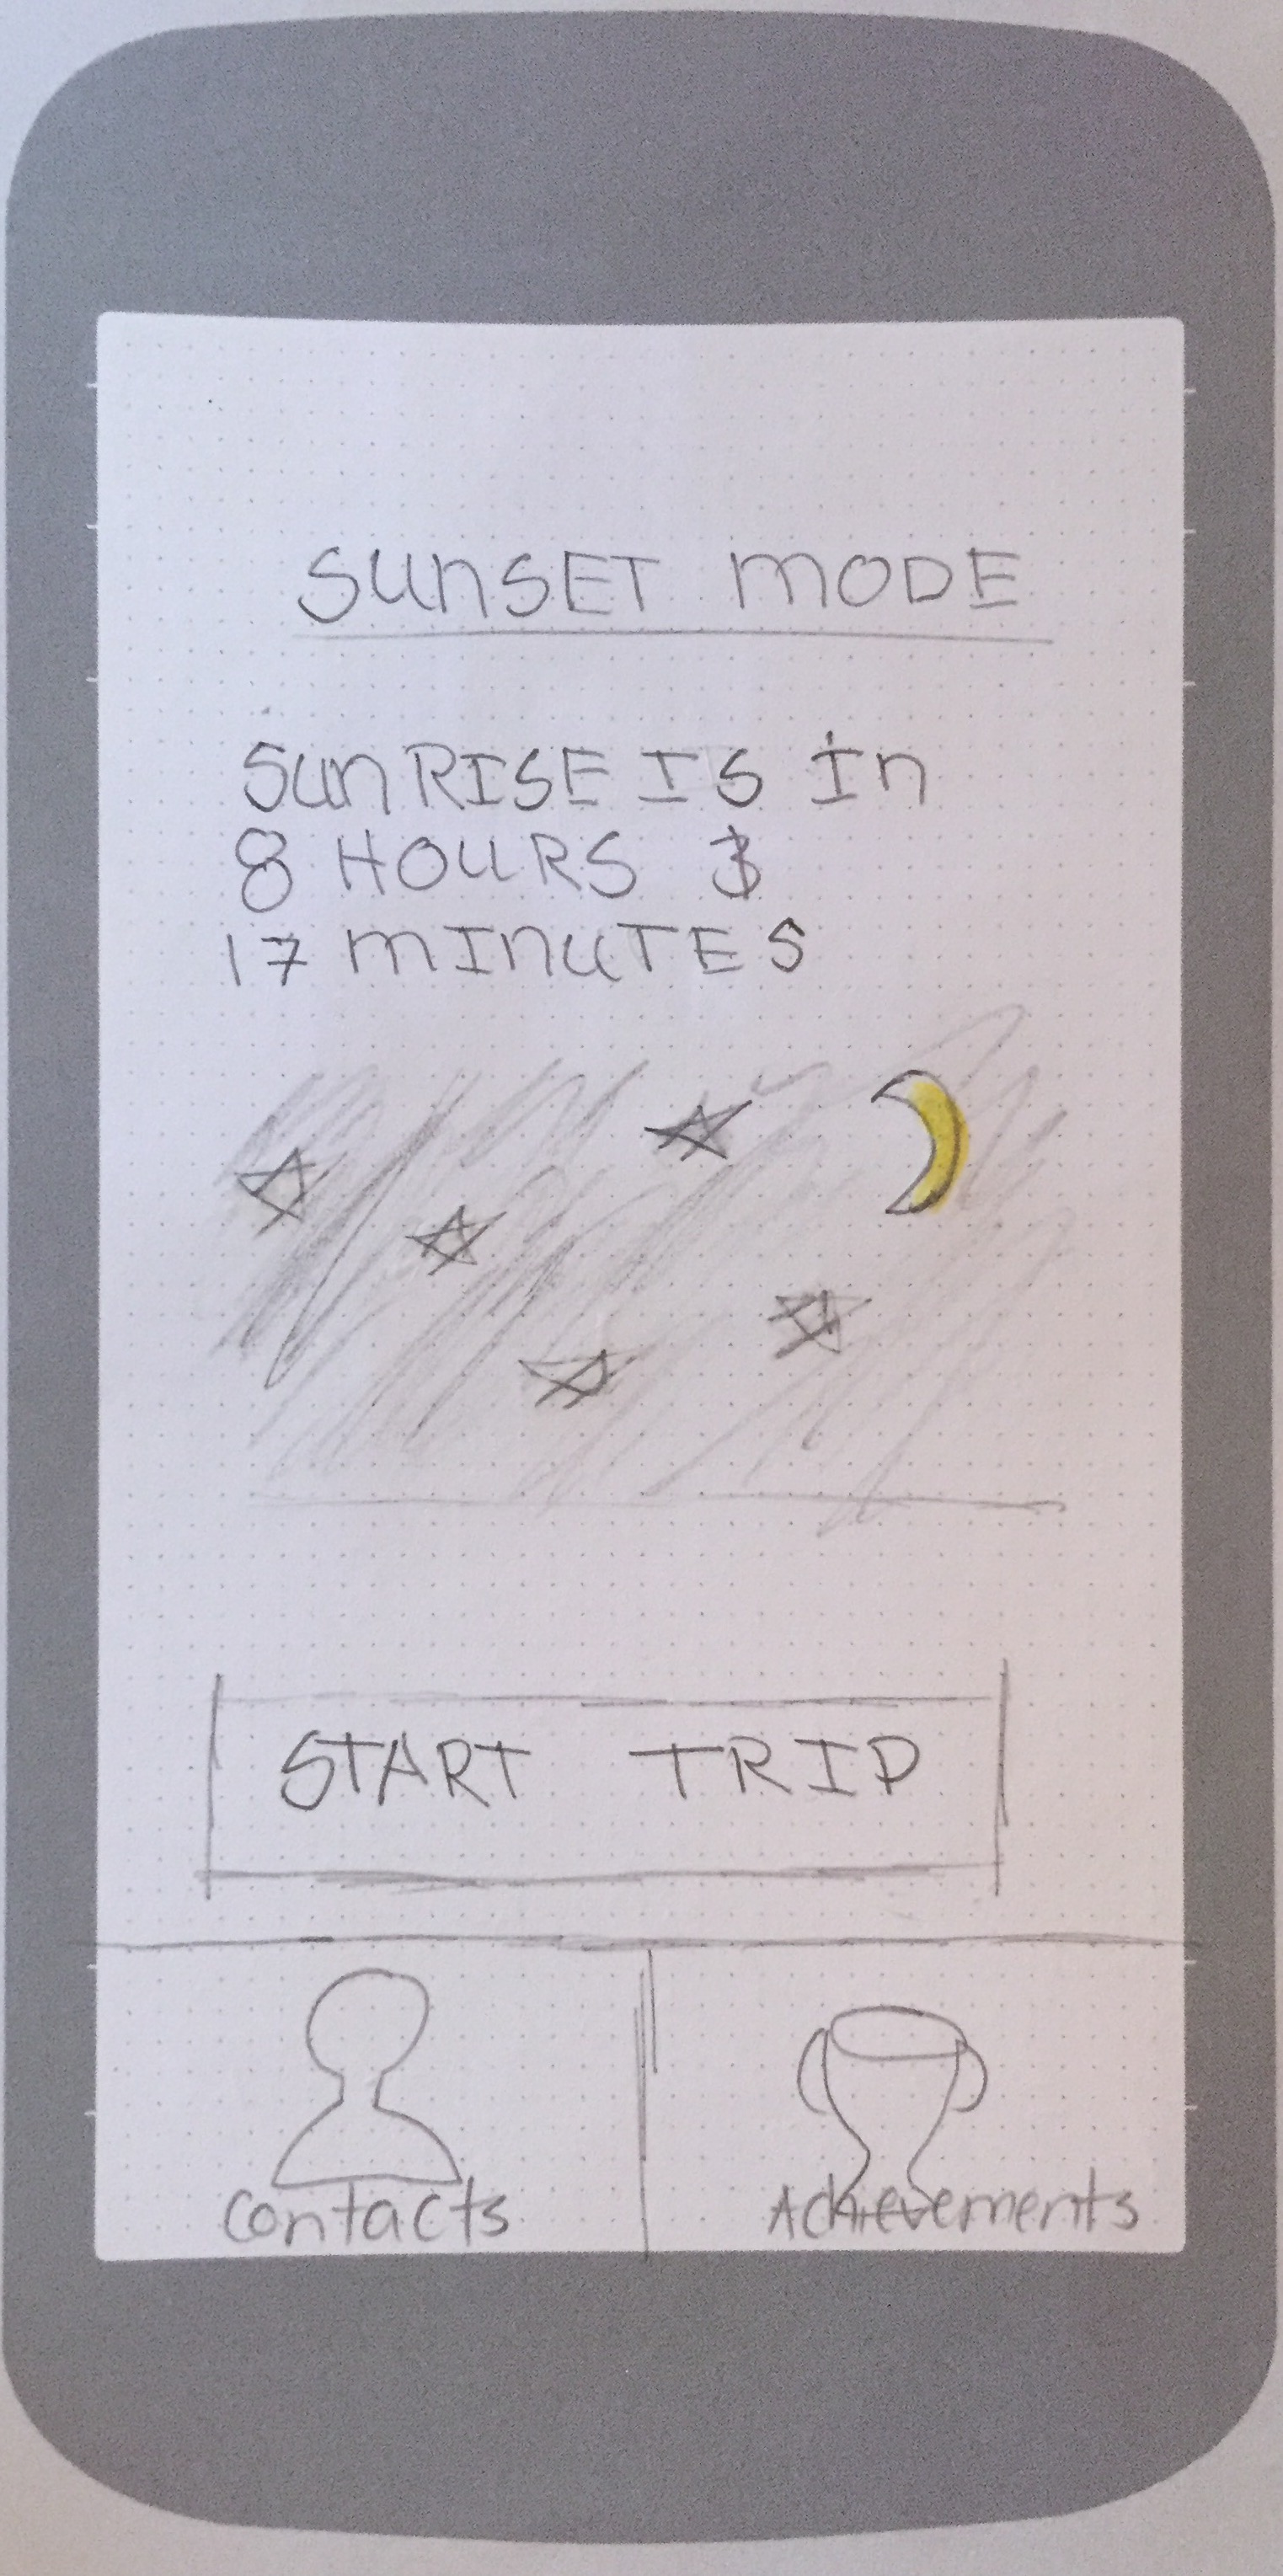 SUNSET MODE
SUNRISE IS IN
8 HOURS &
17 MINUTES
START TRIP
Contacts
Achievements